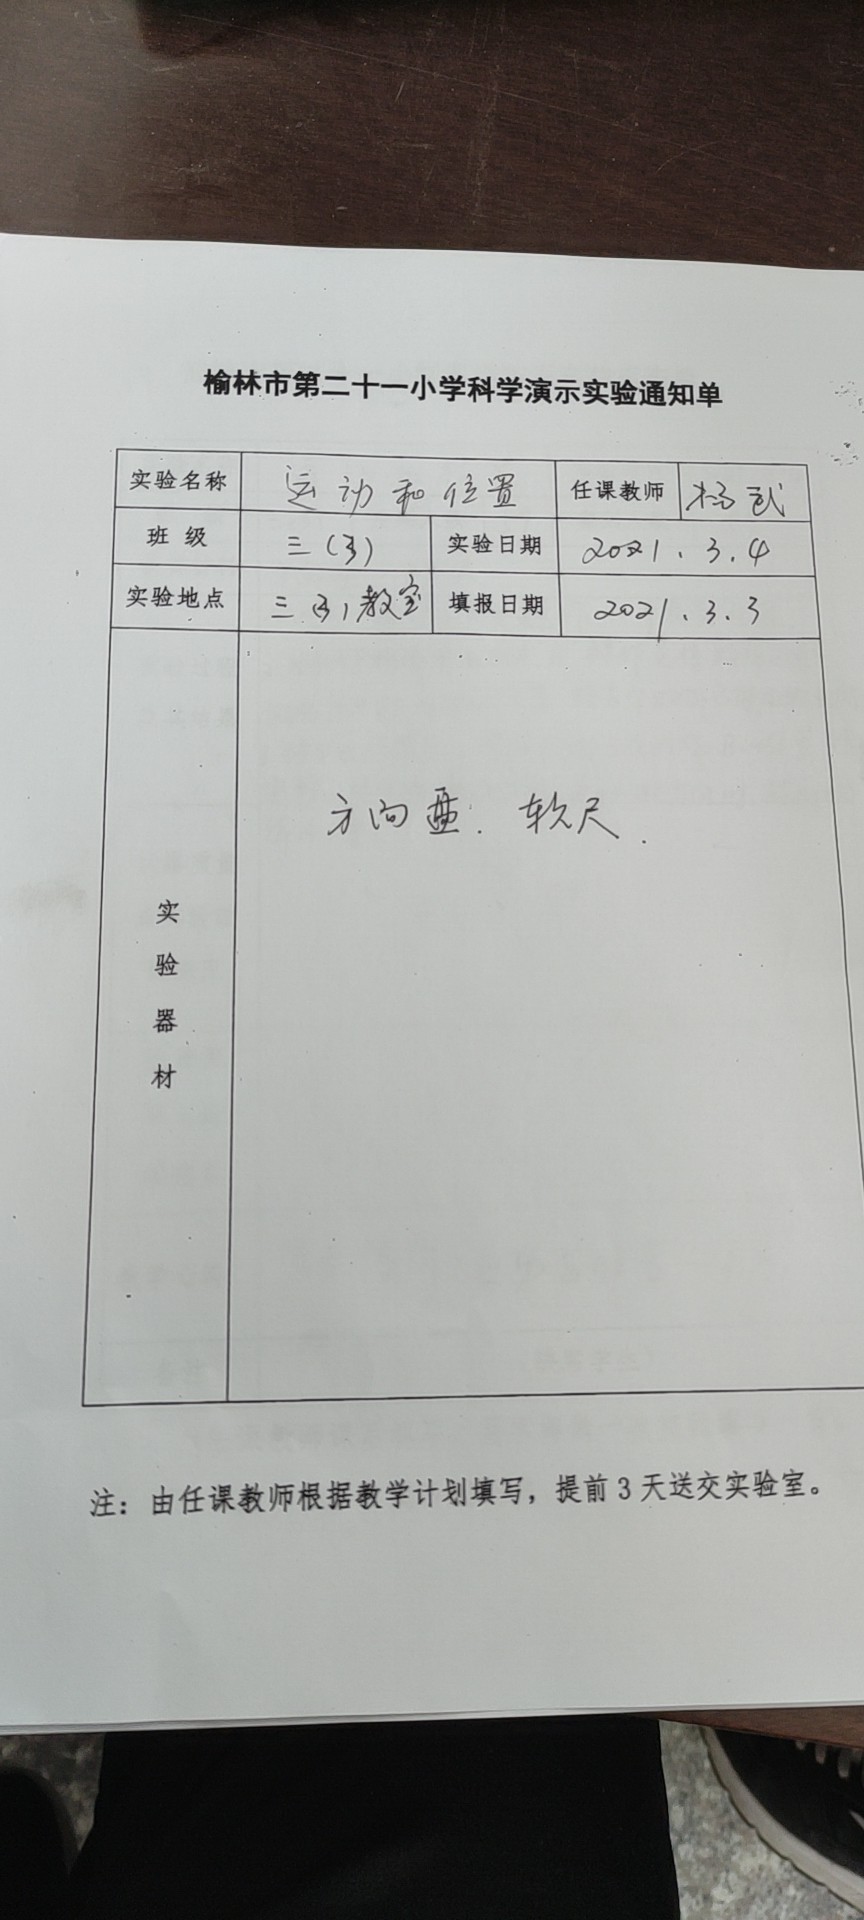 榆林市第二十一小学科学演示实验通知单
实验名称 运动和位置 任课教师 杨武
班级 三(3) 实验日期 2021.3.4
实验地点 三(3)教室 填报日期 2021.3.3
实验器材 方向盘. 软尺.
注：由任课教师根据教学计划填写，提前3天送交实验室。